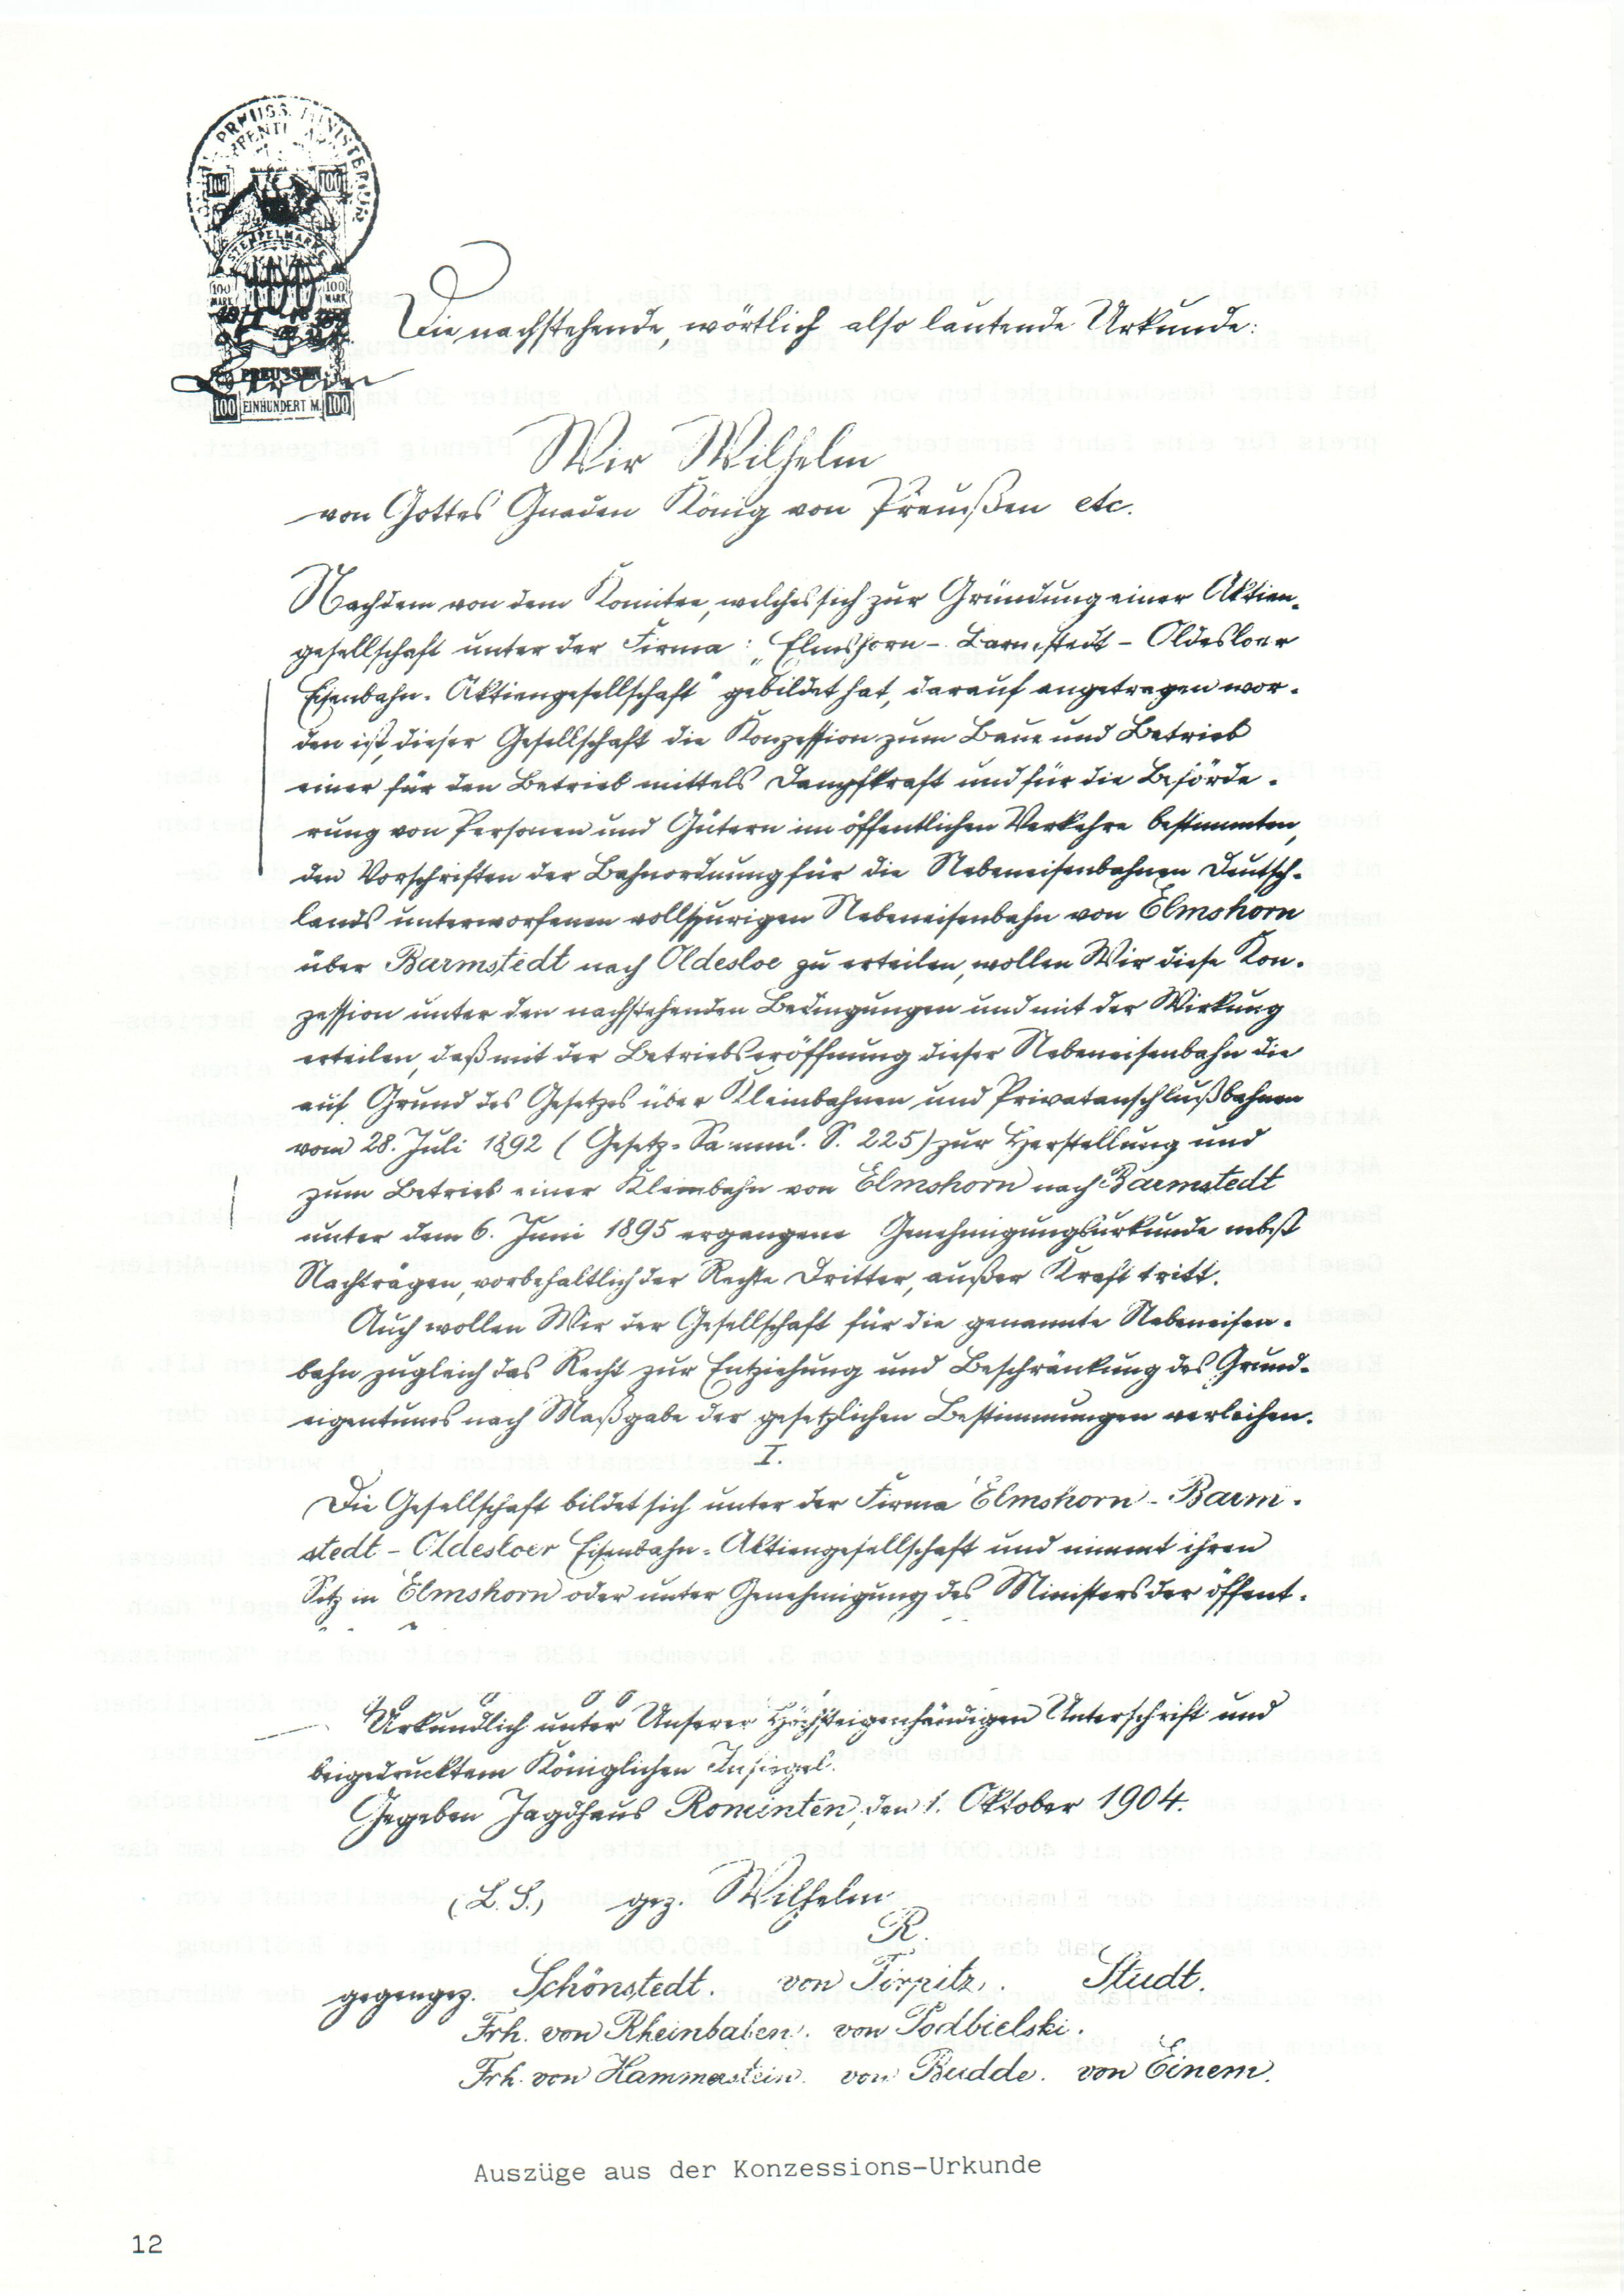 PREUSS. MINISTERIUM
100 100
STEMPELMARKE
100 MARK 100 MARK
PREUSSEN
100 EINHUNDERT M. 100
Die nachstehende, wörtlich also lautende Urkunde:
Wir Wilhelm
von Gottes Gnaden König von Preußen etc.
Nachdem von dem Komitee, welches sich zur Gründung einer Aktien-
gesellschaft unter der Firma: „Elmshorn-Barmstedt-Oldesloer
Eisenbahn-Aktiengesellschaft" gebildet hat, darauf angetragen wor-
den ist, dieser Gesellschaft die Konzession zum Baue und Betrieb
einer für den Betrieb mittels Dampfkraft und für die Beförde-
rung von Personen und Gütern im öffentlichen Verkehre bestimmten,
den Vorschriften der Bahnordnung für die Nebeneisenbahnen Deutsch-
lands unterworfenen vollspurigen Nebeneisenbahn von Elmshorn
über Barmstedt nach Oldesloe zu erteilen, wollen Wir diese Kon-
zession unter den nachstehenden Bedingungen und mit der Wirkung
erteilen, daß mit der Betriebseröffnung dieser Nebeneisenbahn die
auf Grund des Gesetzes über Kleinbahnen und Privatanschlußbahnen
vom 28. Juli 1892 (Gesetz-Samml. S. 225) zur Herstellung und
zum Betrieb einer Kleinbahn von Elmshorn nach Barmstedt
unter dem 6. Juni 1895 ergangene Genehmigungsurkunde nebst
Nachträgen, vorbehaltlich der Rechte Dritter, außer Kraft tritt.
Auch wollen Wir der Gesellschaft für die genannte Nebeneisen-
bahn zugleich das Recht zur Entziehung und Beschränkung des Grund-
eigentums nach Maßgabe der gesetzlichen Bestimmungen verleihen.
I.
Die Gesellschaft bildet sich unter der Firma Elmshorn-Barm-
stedt-Oldesloer Eisenbahn-Aktiengesellschaft und nimmt ihren
Sitz in Elmshorn oder unter Genehmigung des Ministers der öffent-
Urkundlich unter Unserer Höchsteigenhändigen Unterschrift und
beigedrucktem Königlichen Insiegel.
Gegeben Jagdhaus Rominten, den 1. Oktober 1904.
(L.S.) gez. Wilhelm
R.
gegengez. Schönstedt. von Tirpitz. Studt.
Frh. von Rheinbaben. von Podbielski.
Frh. von Hammerstein. von Budde. von Einem.
Auszüge aus der Konzessions-Urkunde
12